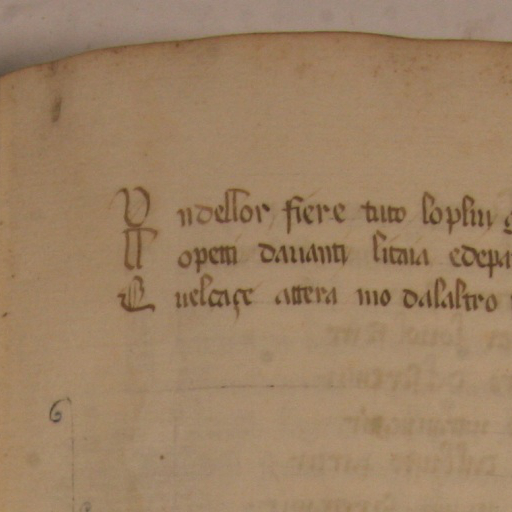 V ndellor fiere tuto loplui
Il opetti dauanti litaia edepa
E uelcaçe attera mo dalaltro
6